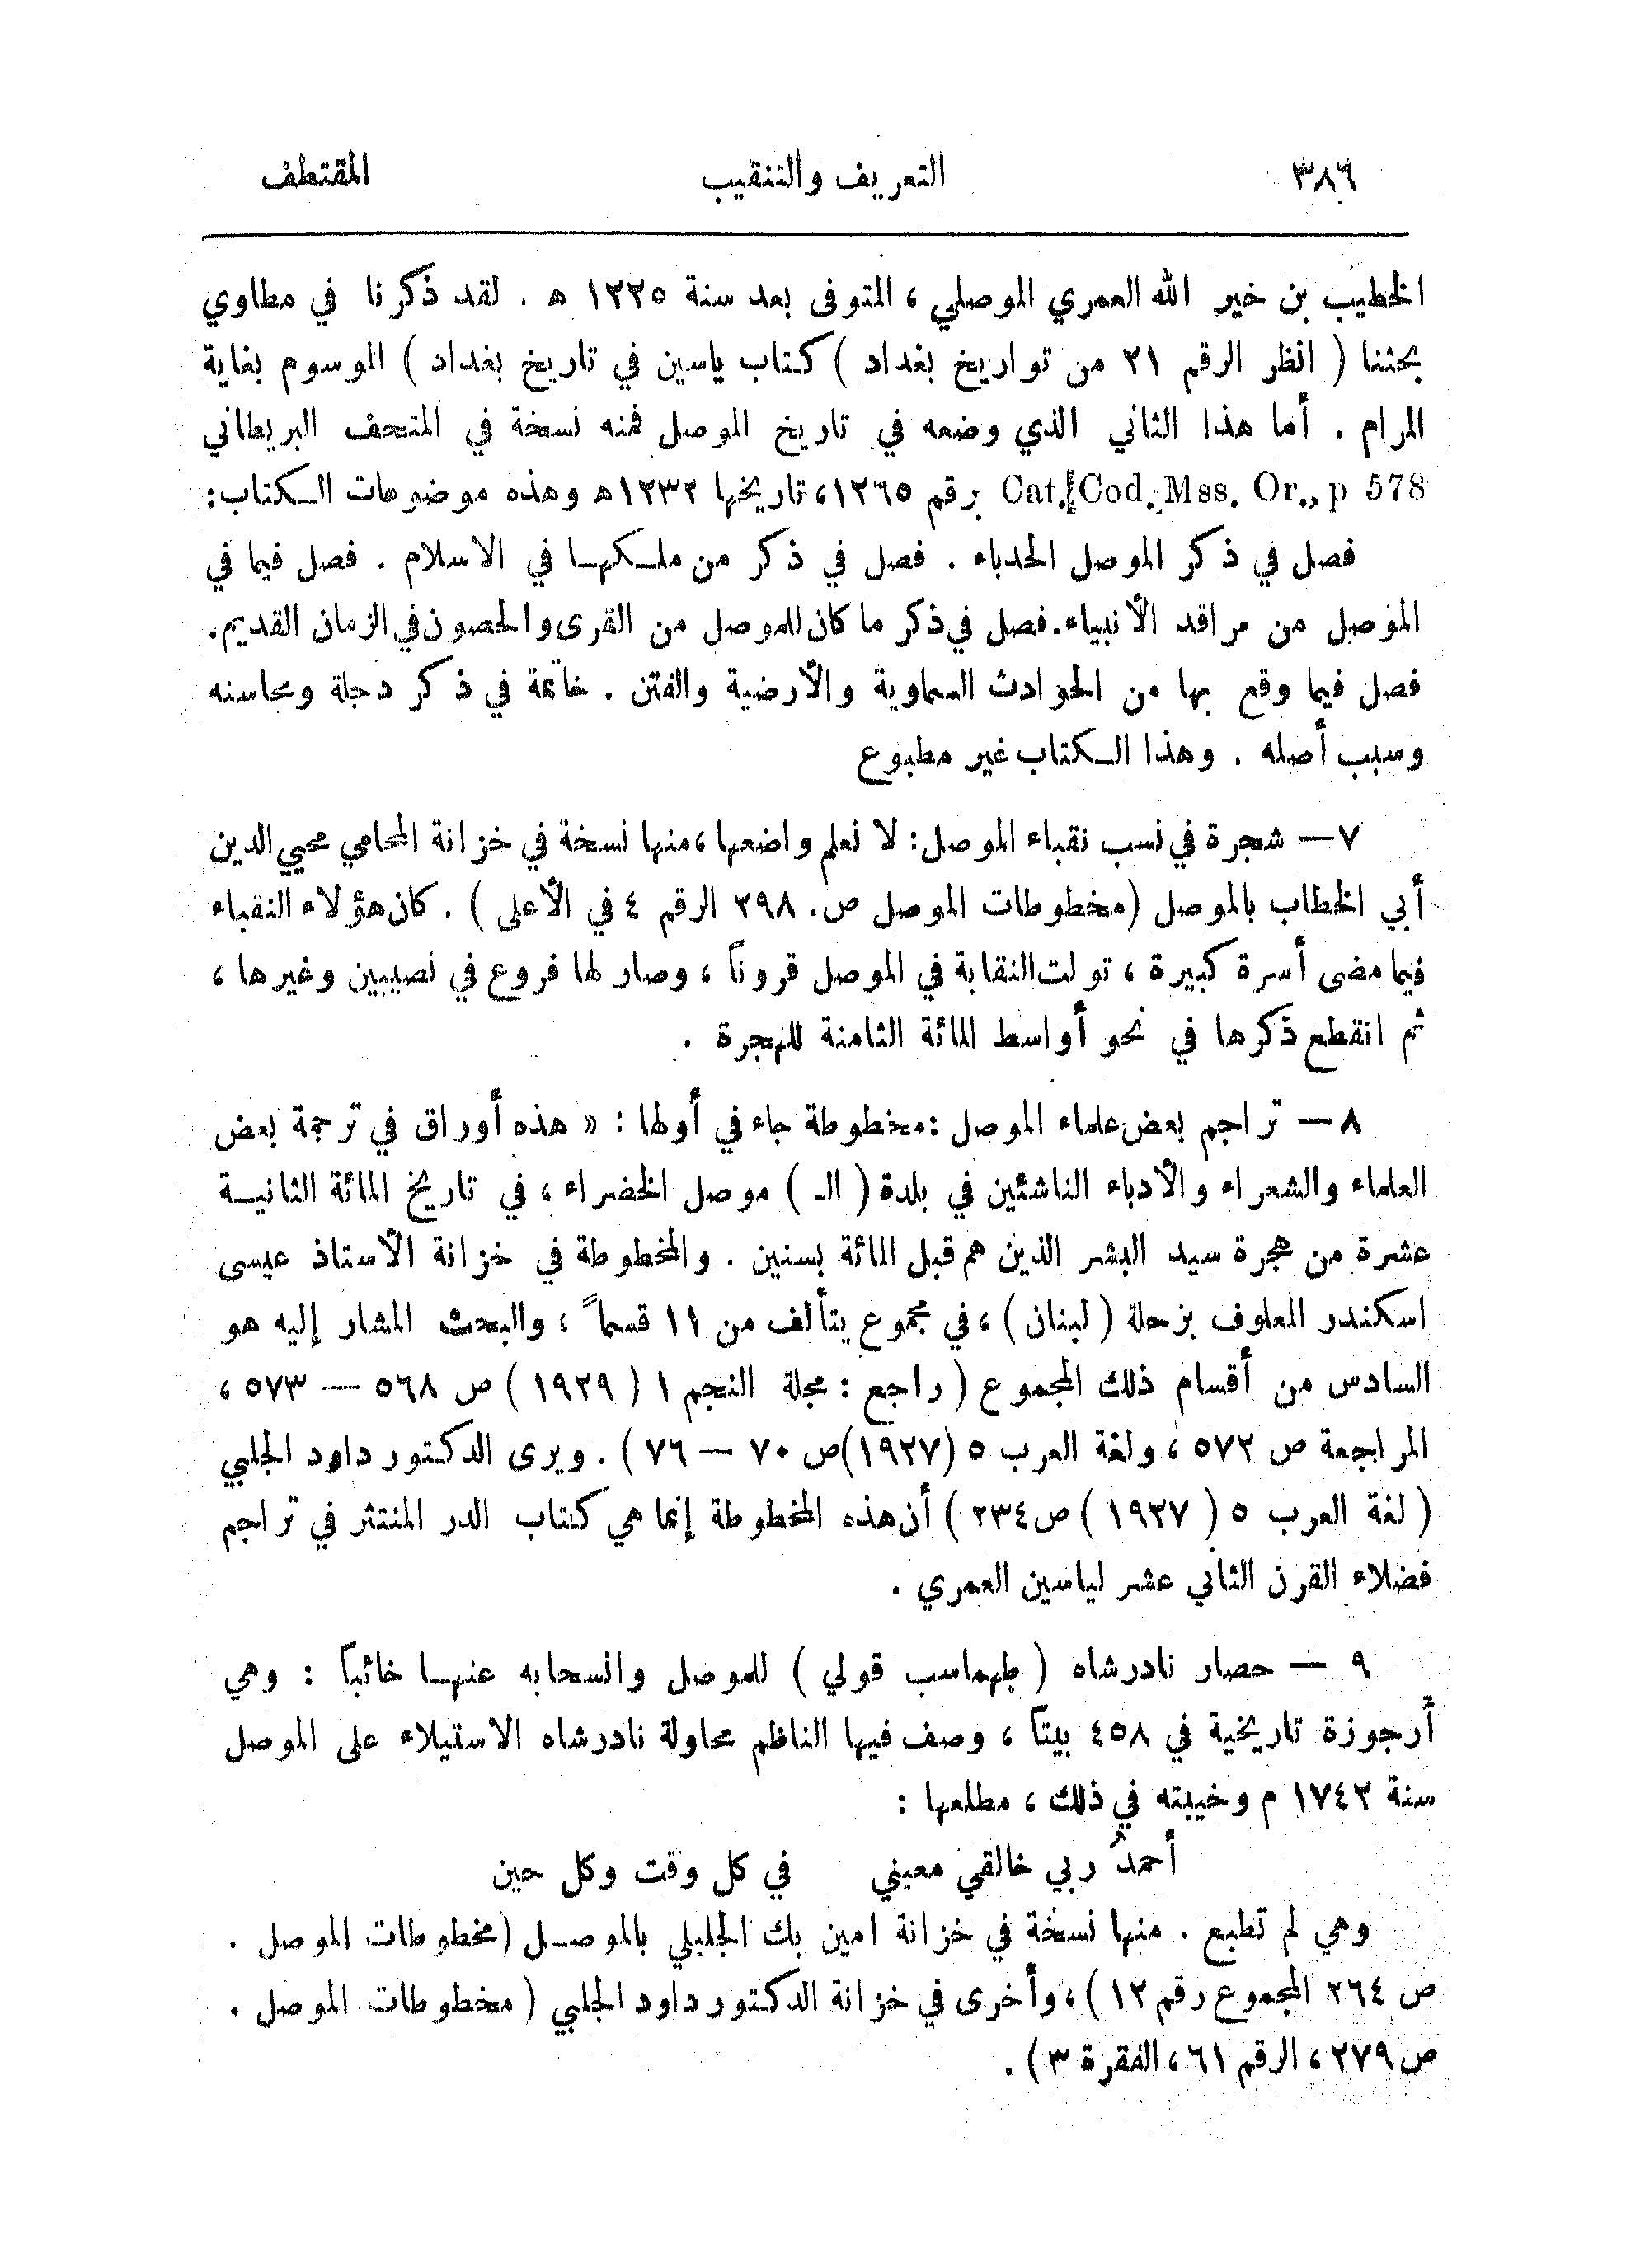 ٣٨٦ التعريف والتنقيب المقتطف
الخطيب بن خير الله العمري الموصلي ، المتوفى بعد سنة ١٢٣٥ ه . لقد ذكرنا في مطاوي
بحثنا ( انظر الرقم ٢١ من تواريخ بغداد ) كتاب ياسين في تاريخ بغداد ) الموسوم بغاية
المرام . أما هذا الثاني الذي وضعه في تاريخ الموصل فمنه نسخة في المتحف البريطاني
Cat. Cod. Mss. Or., p 578 برقم ١٢٦٥، تاريخها ١٢٣٢ه وهذه موضوعات الكتاب:
فصل في ذكر الموصل الحدباء . فصل في ذكر من ملكها في الاسلام . فصل فيما في
الموصل من مراقد الأنبياء. فصل في ذكر ما كان للموصل من القرى والحصون في الزمان القديم.
فصل فيما وقع بها من الحوادث السماوية والأرضية والفتن . خاتمة في ذكر دجلة ومحاسنه
وسبب أصله . وهذا الكتاب غير مطبوع
٧ — شجرة في نسب نقباء الموصل: لا نعلم واضعها ، منها نسخة في خزانة المحامي محيي الدين
أبي الخطاب بالموصل (مخطوطات الموصل ص. ٢٩٨ الرقم ٤ في الأعلى ) . كان هؤلاء النقباء
فيما مضى أسرة كبيرة ، تولت النقابة في الموصل قروناً ، وصار لها فروع في نصيبين وغيرها ،
ثم انقطع ذكرها في نحو أواسط المائة الثامنة للهجرة .
٨ — تراجم بعض علماء الموصل : مخطوطة جاء في أولها : « هذه أوراق في ترجمة بعض
العلماء والشعراء والأدباء الناشئين في بلدة ( الـ ) موصل الخضراء ، في تاريخ المائة الثانية
عشرة من هجرة سيد البشر الذين هم قبل المائة بسنين . والمخطوطة في خزانة الأستاذ عيسى
اسكندر المعلوف بزحلة ( لبنان ) ، في مجموع يتألف من ١١ قسماً ، والبحث المشار إليه هو
السادس من أقسام ذلك المجموع ( راجع : مجلة النجم ١ ( ١٩٢٩ ) ص ٥٦٨ — ٥٧٣ ،
المراجعة ص ٥٧٢ ، ولغة العرب ٥ (١٩٢٧) ص ٧٠ — ٧٦ ) . ويرى الدكتور داود الجلبي
( لغة العرب ٥ ( ١٩٢٧ ) ص ٢٣٤ ) أن هذه المخطوطة إنما هي كتاب الدر المنتثر في تراجم
فضلاء القرن الثاني عشر لياسين العمري .
٩ — حصار نادرشاه ( طهماسب قولي ) للموصل وانسحابه عنها خائباً : وهي
أرجوزة تاريخية في ٤٥٨ بيتاً ، وصف فيها الناظم محاولة نادرشاه الاستيلاء على الموصل
سنة ١٧٤٣ م وخيبته في ذلك ، مطلعها :
أحمدُ ربي خالقي معيني في كل وقت وكل حين
وهي لم تطبع . منها نسخة في خزانة امين بك الجليلي بالموصل (مخطوطات الموصل .
ص ٢٦٤ المجموع رقم ١٢ ) ، وأخرى في خزانة الدكتور داود الجلبي ( مخطوطات الموصل .
ص ٢٧٩ ، الرقم ٦١ ، الفقرة ٣ ) .